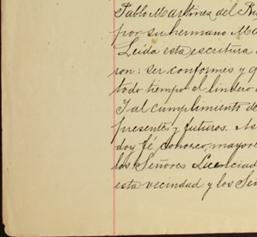 Pablo Martinez del Rio
por su hermano Ma
Leida esta escritura
son: ser conformes y q
todo tiempo el lindero
Y al cumplimiento de
presentes y futuros. As
doy fé conozco, mayore
los Señores Licenciad
esta vecindad y los Señ